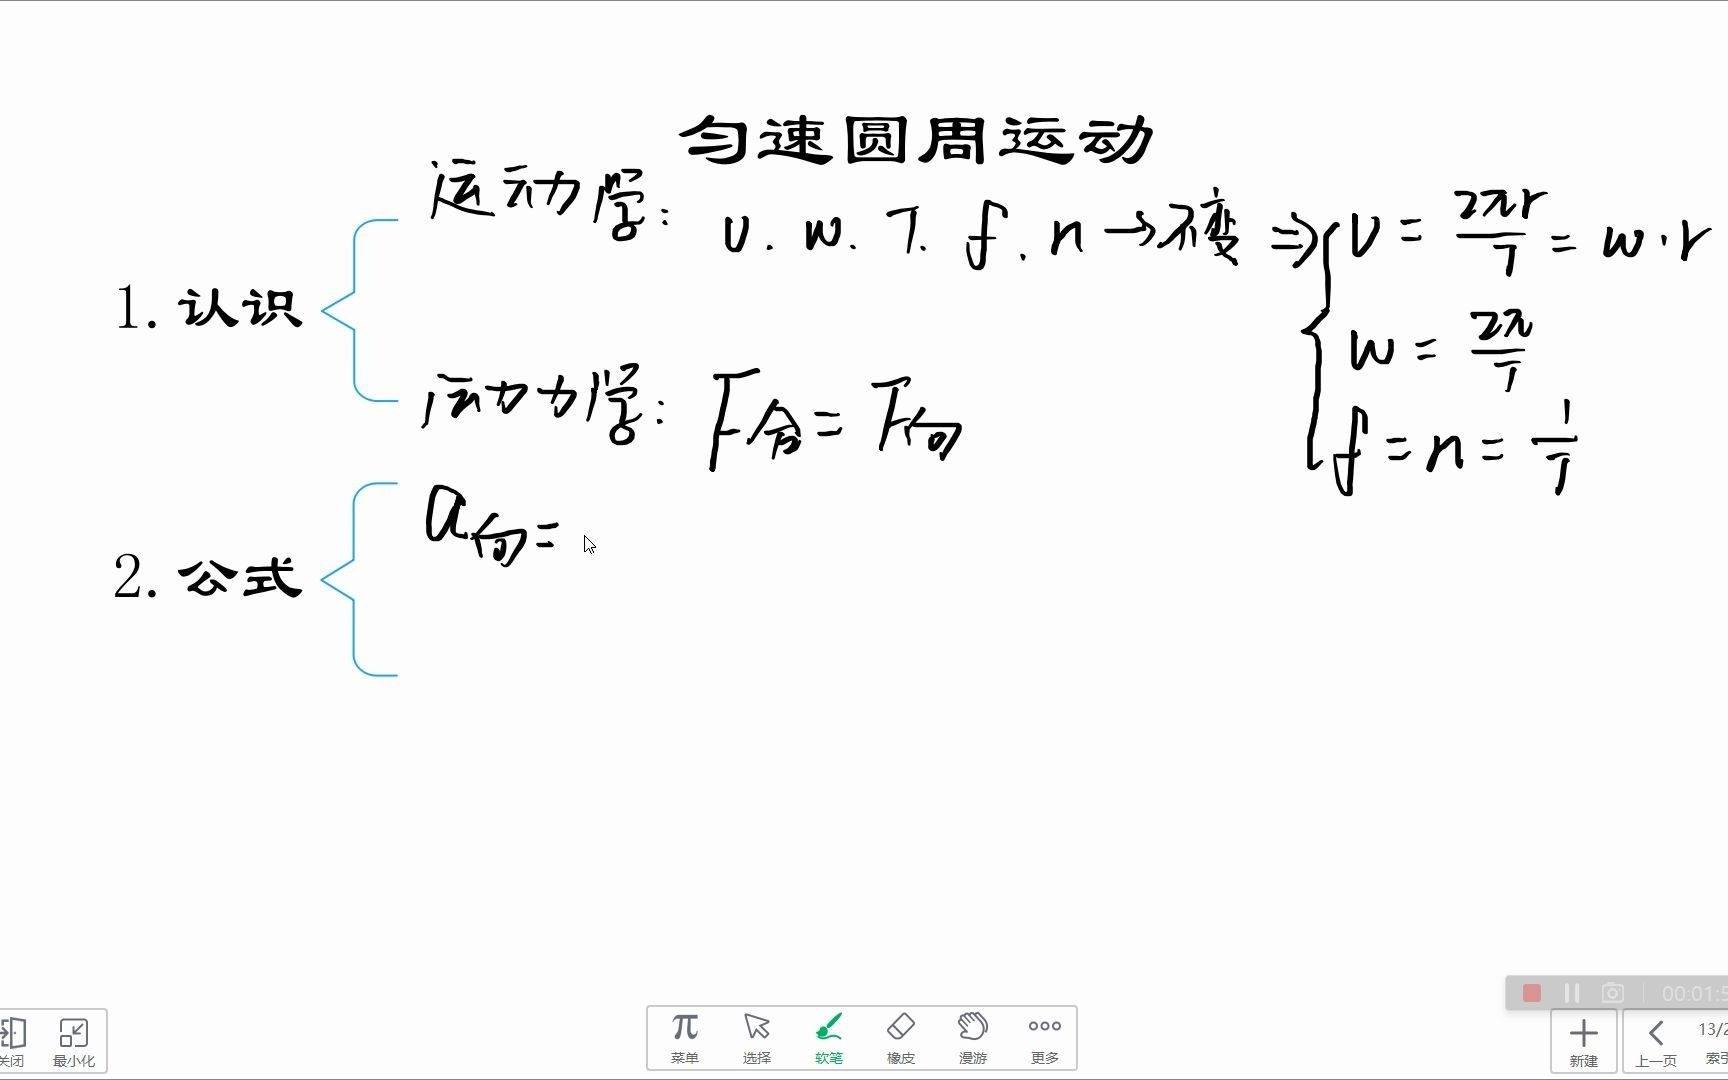 匀速圆周运动
运动学: v. w. T. f. n → 不变 ⇒ { v = 2πr/T = w·r
w = 2π/T
f = n = 1/T
1. 认识
运动力学: F合 = F向
a向 =
2. 公式
00:01:5
关闭 最小化 菜单 选择 软笔 橡皮 漫游 更多 新建 上一页 13/2 索引